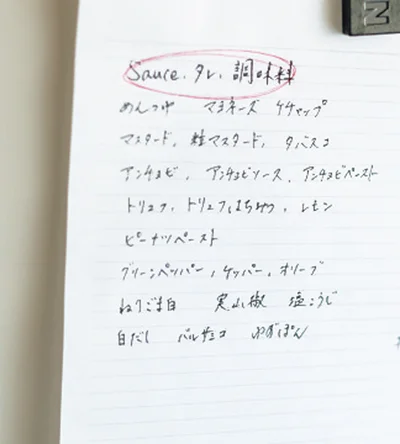 Sauce、タレ、調味料
めんつゆ マヨネーズ ケチャップ
マスタード、粒マスタード、タバスコ
アンチョビ、アンチョビソース、アンチョビペースト
トリュフ、トリュフはちみつ、レモン
ピーナツペースト
グリーンペッパー、ケッパー、オリーブ
ねりごま白 実山椒 塩こうじ
白だし バルサミコ ゆずぽん
N